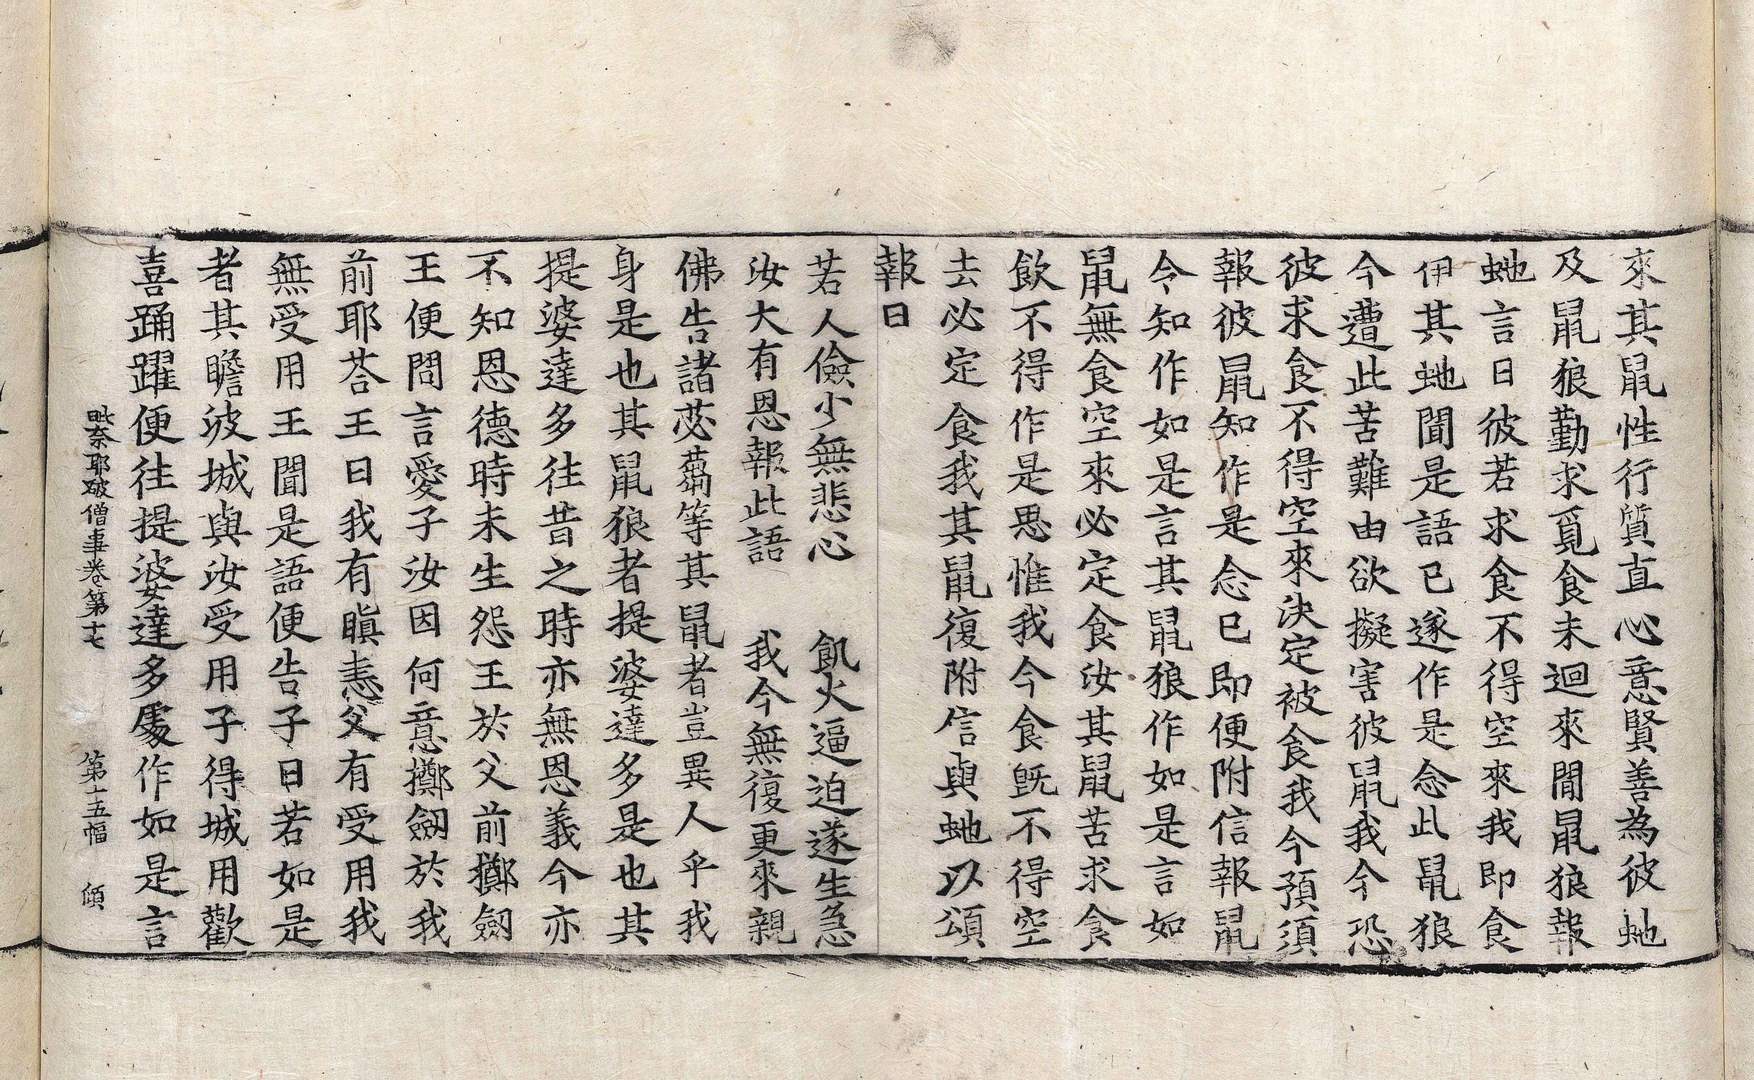 來其鼠性行質直心意賢善為彼虵
及鼠狼勤求覓食未迴來間鼠狼報
虵言曰彼若求食不得空來我即食
伊其虵聞是語已遂作是念此鼠狼
今遭此苦難由欲擬害彼鼠我今恐
彼求食不得空來決定被食我今預須
報彼鼠知作是念已即便附信報鼠
今知作如是言其鼠狼作如是言如
鼠無食空來必定食汝其鼠苦求食
飲不得作是思惟我今食旣不得空
去必定食我其鼠復附信與虵以頌
報曰
若人儉少無悲心　飢火逼迫遂生急
汝大有恩報此語　我今無復更來親
佛告諸苾蒭等其鼠者豈異人乎我
身是也其鼠狼者提婆達多是也其
提婆達多往昔之時亦無恩義今亦
不知恩德時未生怨王於父前擲劒
王便問言愛子汝因何意擲劒於我
前耶荅王曰我有瞋恚父有受用我
無受用王聞是語便告子曰若如是
者其瞻波城與汝受用子得城用歡
喜踊躍便往提婆達多處作如是言
毗奈耶破僧事卷第十七　第十五幅　傾